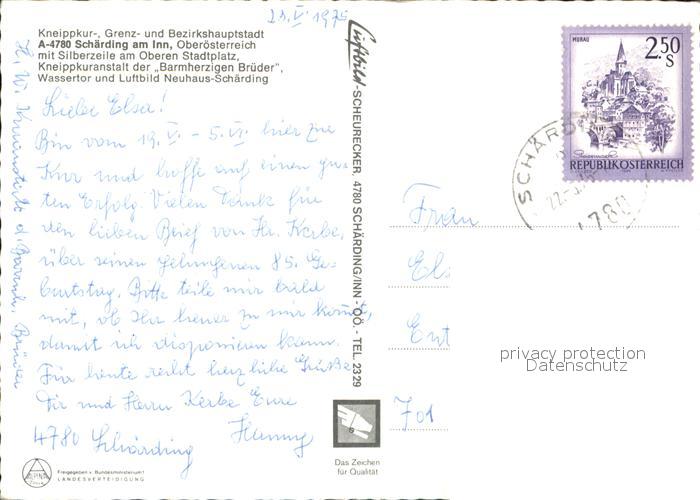 23.V.1975
Kneippkur-, Grenz- und Bezirkshauptstadt
A-4780 Schärding am Inn, Oberösterreich
mit Silberzeile am Oberen Stadtplatz,
Kneippkuranstalt der „Barmherzigen Brüder",
Wassertor und Luftbild Neuhaus-Schärding
Liebe Elsa!
Bin vom 19.V. - 5.VI. hier zur
Kur und hoffe auf einen gu-
ten Erfolg. Vielen Dank für
den lieben Brief von Hr. Kerbe,
über seinen gelungenen 85. Ge-
burtstag. Bitte teile mir bald
mit, ob Ihr heuer zu mir kommt,
damit ich disponieren kann.
Für heute recht herzliche Grüße
Dir und Herrn Kerbe Eure
4780 Schärding
d. Barmh. Brüder
Freigegeben v. Bundesministerium f.
LANDESVERTEIDIGUNG
ALPINA
Luftbild-SCHEURECKER, 4780 SCHÄRDING/INN - OÖ. - TEL. 2329
Das Zeichen
für Qualität
MURAU
2.50
S
REPUBLIK ÖSTERREICH
SCHÄRD
4780
Frau
Els
privacy protection
Datenschutz